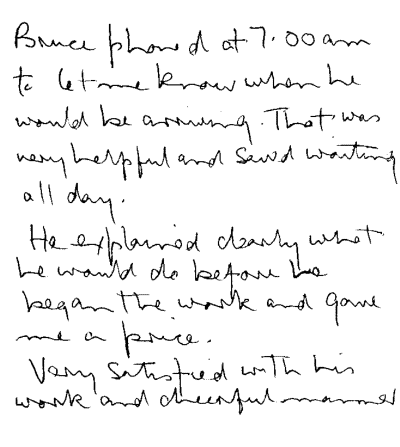 Bruce phoned at 7.00am
to let me know when he
would be arriving. That was
very helpful and saved waiting
all day.
He explained clearly what
he would do before he
began the work and gave
me a price.
Very satisfied with his
work and cheerful manner